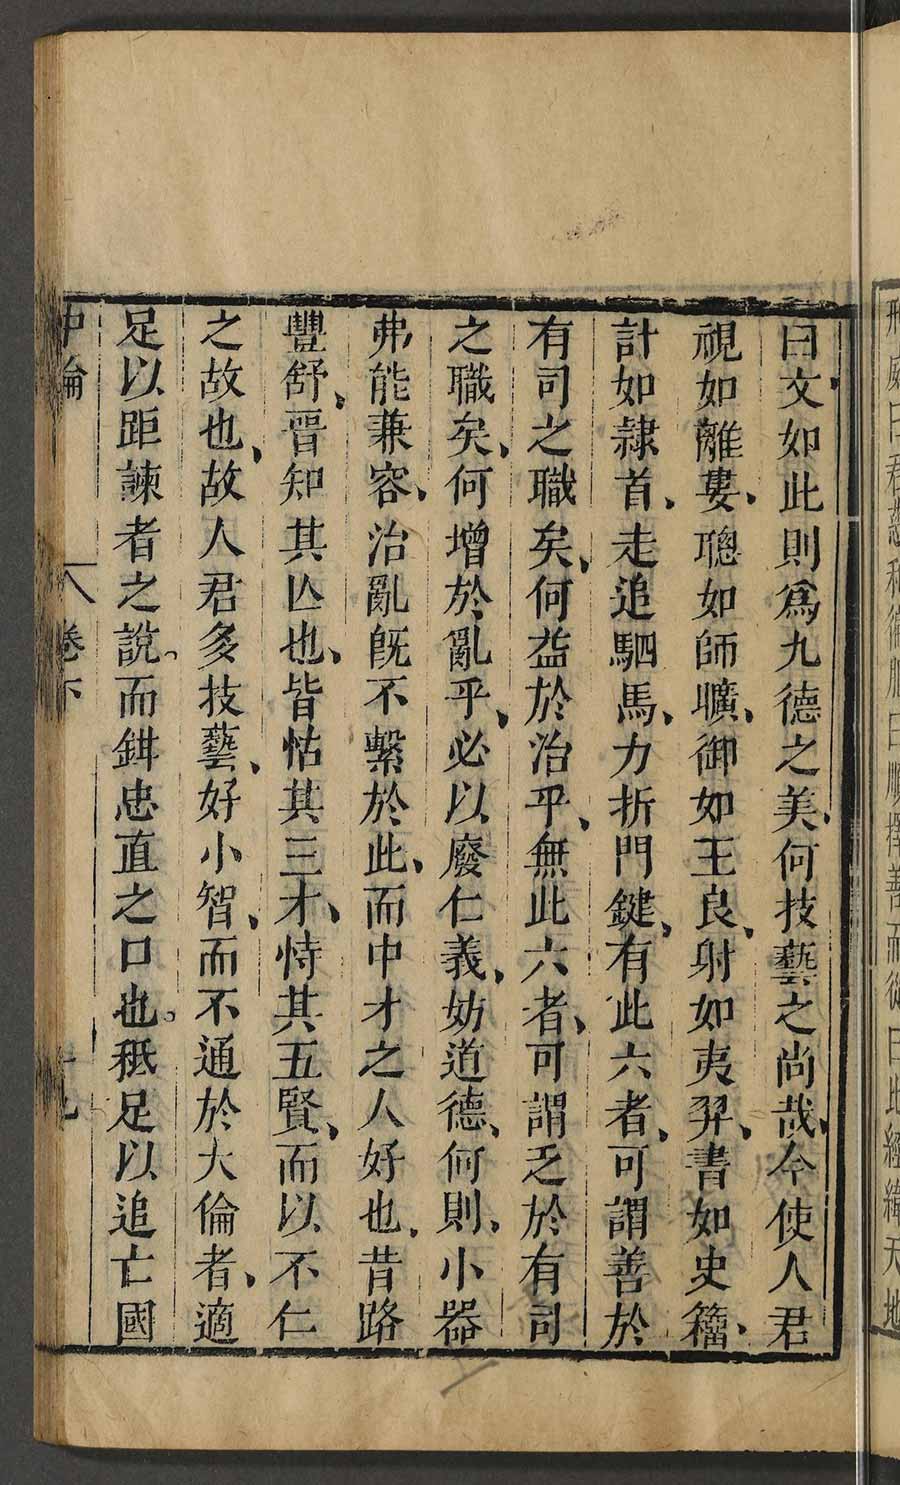 曰文如此則爲九德之美何技藝之尚哉今使人君
視如離婁聰如師曠御如王良射如夷羿書如史籀
計如隷首走追駟馬力折門鍵有此六者可謂善於
有司之職矣何益於治乎無此六者可謂乏於有司
之職矣何增於亂乎必以廢仁義妨道德何則小器
弗能兼容治亂旣不繫於此而中才之人好也昔路
豐舒晉知其亾也皆怙其三才恃其五賢而以不仁
之故也故人君多技藝好小智而不通於大倫者適
足以距諫者之說而鉗忠直之口也秪足以追亡國
中論
卷下
十九